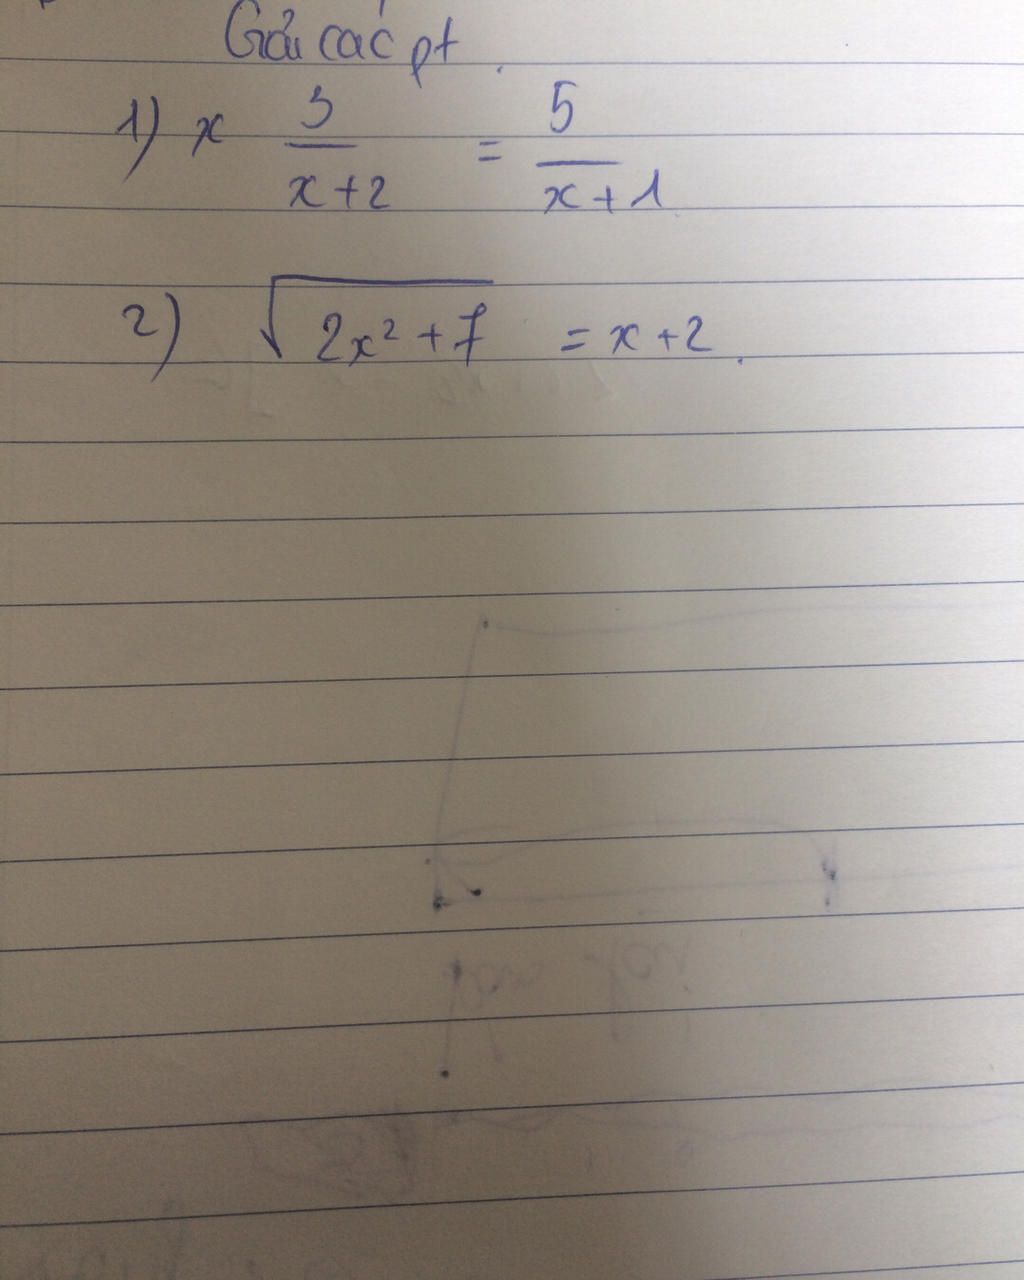 Giải các pt
1) x 3/(x+2) = 5/(x+1)
2) √(2x²+7) = x+2.